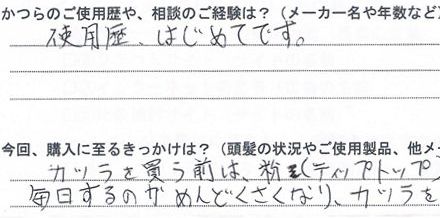 かつらのご使用歴や、相談のご経験は？（メーカー名や年数など
使用歴、はじめてです。
今回、購入に至るきっかけは？（頭髪の状況やご使用製品、他メ
カツラを買う前は、粉（ティップトップ）
毎日するのがめんどくさくなり、カツラを